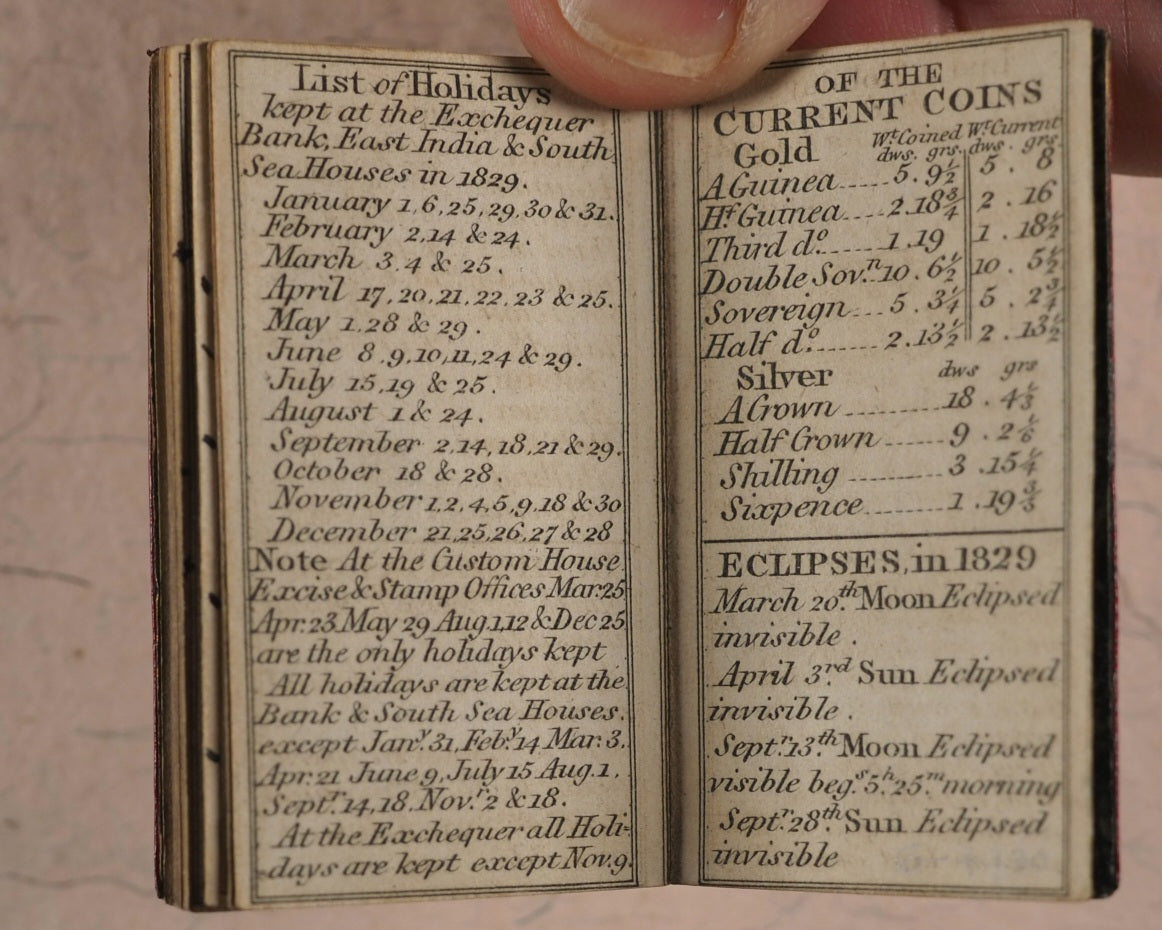 List of Holidays
kept at the Exchequer
Bank, East India & South
Sea Houses in 1829.
January 1,6,25,29,30 & 31.
February 2,14 & 24.
March 3.4 & 25.
April 17,20,21,22,23 & 25.
May 1,28 & 29.
June 8.9,10,11,24 & 29.
July 15,19 & 25.
August 1 & 24.
September 2,14,18,21 & 29.
October 18 & 28.
November 1,2,4,5,9,18 & 30
December 21,25,26,27 & 28
Note At the Custom House
Excise & Stamp Offices Mar.25
Apr.23 May 29 Aug.1,12 & Dec 25
are the only holidays kept
All holidays are kept at the
Bank & South Sea Houses.
except Jan.y 31, Feb.y 14 Mar. 3.
Apr. 21 June 9, July 15 Aug. 1.
Sept.r 14,18. Nov.r 2 & 18.
At the Exchequer all Holi-
days are kept except Nov. 9.
OF THE
CURRENT COINS
Wt. Coined Wt. Current
Gold dws. grs. dws. grs.
A Guinea..... 5. 9½ 5. 8
Hf. Guinea.... 2.18¾ 2. 16
Third do....... 1.19 1. 18½
Double Sov.n 10. 6½ 10. 5½
Sovereign... 5. 3¼ 5. 2¾
Half do....... 2.13½ 2. 13½
Silver dws grs
A Crown ......... 18. 4⅓
Half Crown ...... 9. 2⅙
Shilling ......... 3 .15¼
Sixpence......... 1 .19⅗
ECLIPSES, in 1829
March 20.th Moon Eclipsed
invisible.
April 3.rd Sun Eclipsed
invisible.
Sept.r 13.th Moon Eclipsed
visible beg.s 5.h 25.m morning
Sept.r 28.th Sun Eclipsed
invisible